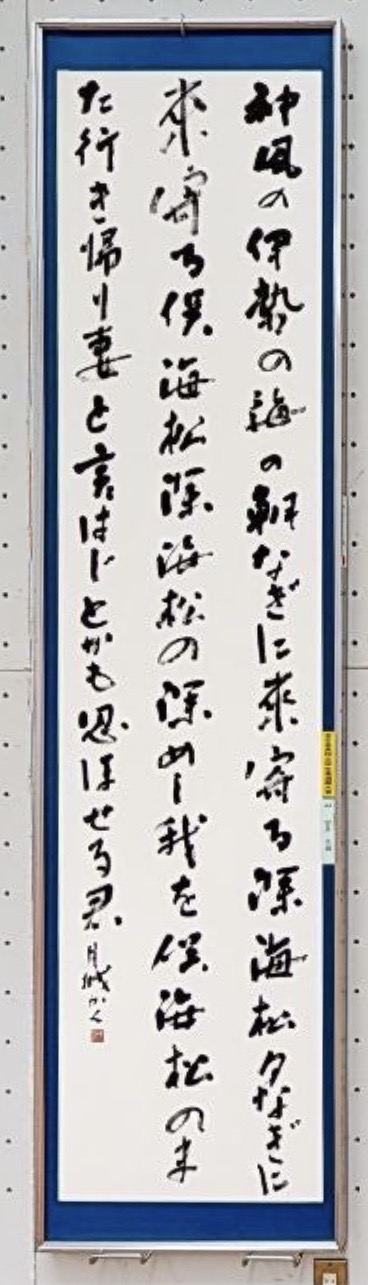 神風の伊勢の海の朝なぎに来寄る深海松夕なぎに
来寄る俣海松深海松の深めし我を俣海松のま
た行き帰り妻と言はじとかも思ほせる君 月城かく